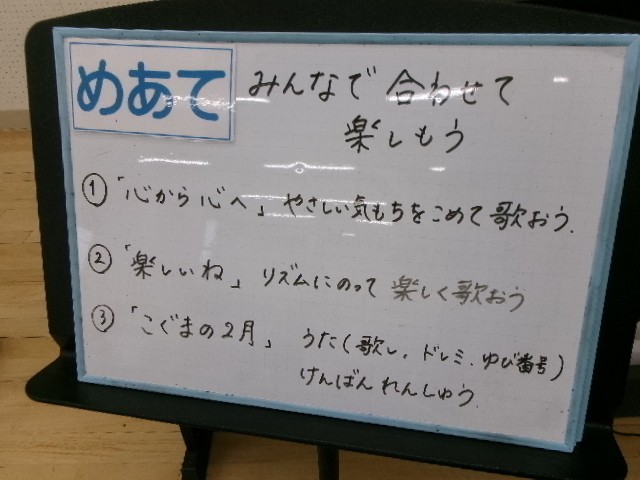 めあて みんなで 合わせて
楽しもう
① 「心から心へ」 やさしい気もちをこめて歌おう.
② 「楽しいね」 リズムにのって 楽しく歌おう
③ 「こぐまの2月」 うた(歌し、ドレミ、ゆび番号)
けんばんれんしゅう.